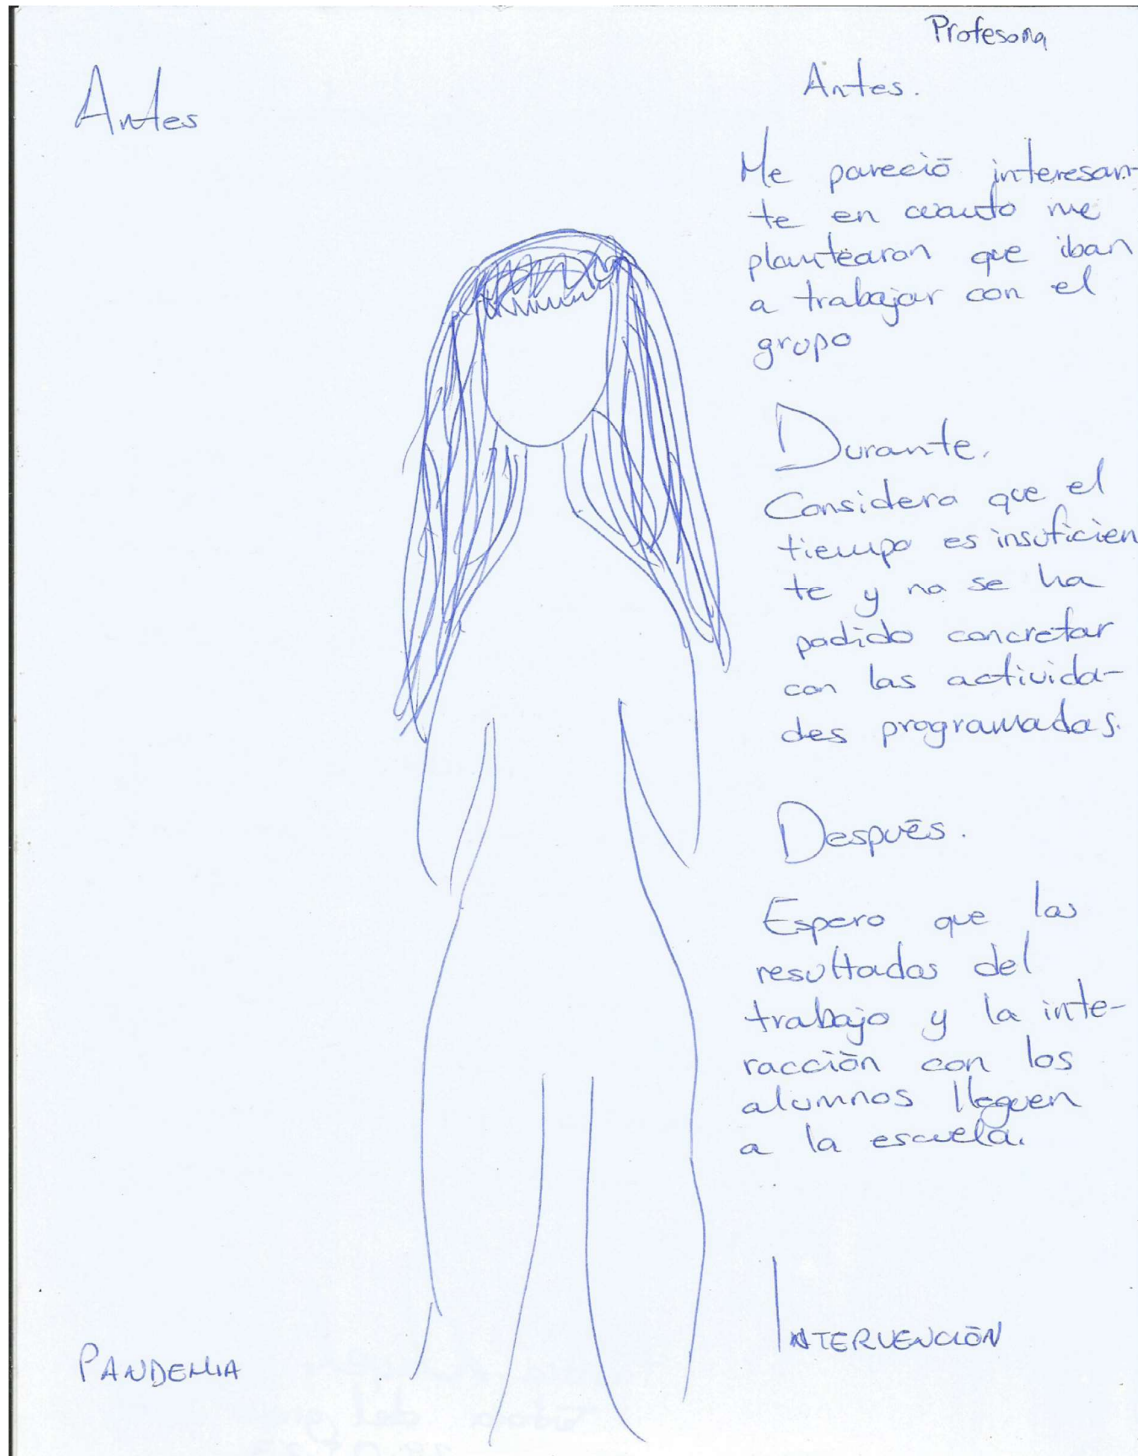 Profesora
Antes
Antes.
Me pareció interesan-
te en cuanto me
plantearon que iban
a trabajar con el
grupo
Durante.
Considera que el
tiempo es insuficien
te y no se ha
podido concretar
con las activida-
des programadas.
Después.
Espero que los
resultados del
trabajo y la inte-
racción con los
alumnos lleguen
a la escuela.
INTERVENCIÓN
PANDEMIA